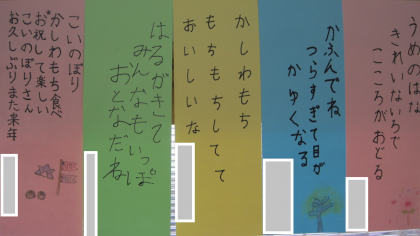 うめのはな
きれいないろで
こころがおどる
かふんでね
つらすぎて目が
かゆくなる
かしわもち
もちもちしてて
おいしいな
はるがきて
みんなもいっぽ
おとなだね
こいのぼり
かしわもち食べ
お祝して楽しい
こいのぼりさん
お久しぶりまた来年